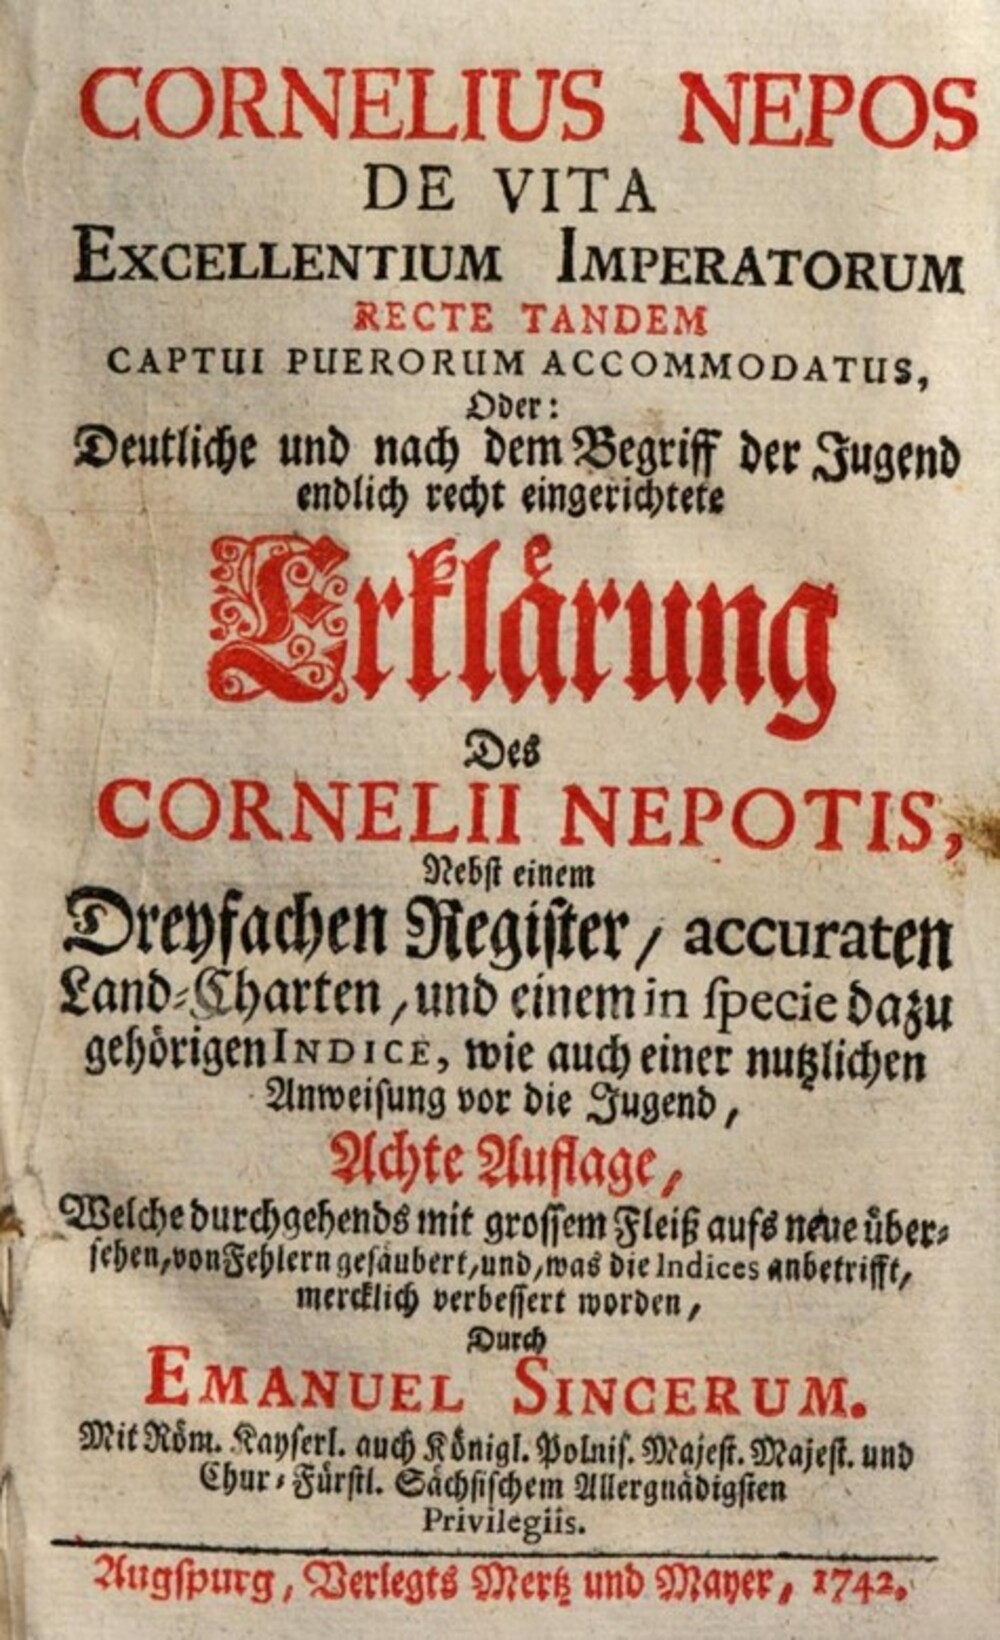 CORNELIUS NEPOS
DE VITA
EXCELLENTIUM IMPERATORUM
RECTE TANDEM
CAPTUI PUERORUM ACCOMMODATUS,
Oder:
Deutliche und nach dem Begriff der Jugend
endlich recht eingerichtete
Erklaͤrung
Des
CORNELII NEPOTIS,
Nebst einem
Dreyfachen Register / accuraten
Land-Charten, und einem in specie dazu
gehörigen INDICE, wie auch einer nutzlichen
Anweisung vor die Jugend,
Achte Auflage,
Welche durchgehends mit grossem Fleiß aufs neue uͤber-
sehen, von Fehlern gesaubert, und, was die Indices anbetrifft,
mercklich verbessert worden,
Durch
EMANUEL SINCERUM.
Mit Röm. Kayserl. auch Koͤnigl. Polnis. Majest. Majest. und
Chur-Fürstl. Sächsischem Allergnädigsten
Privilegiis.
Augspurg, Verlegts Mertz und Mayer, 1742.